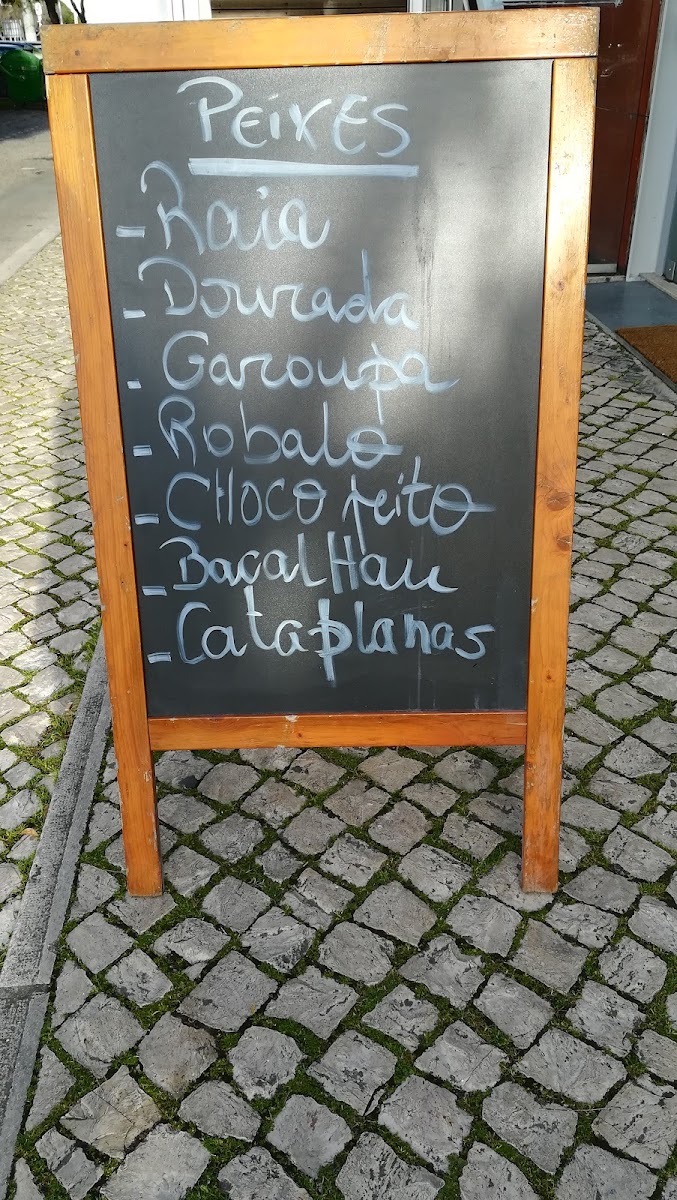 PEiXES
- Raia
- Dourada
- Garoupa
- Robalo
- CHOCO feito
- BacalHau
- Cataplanas